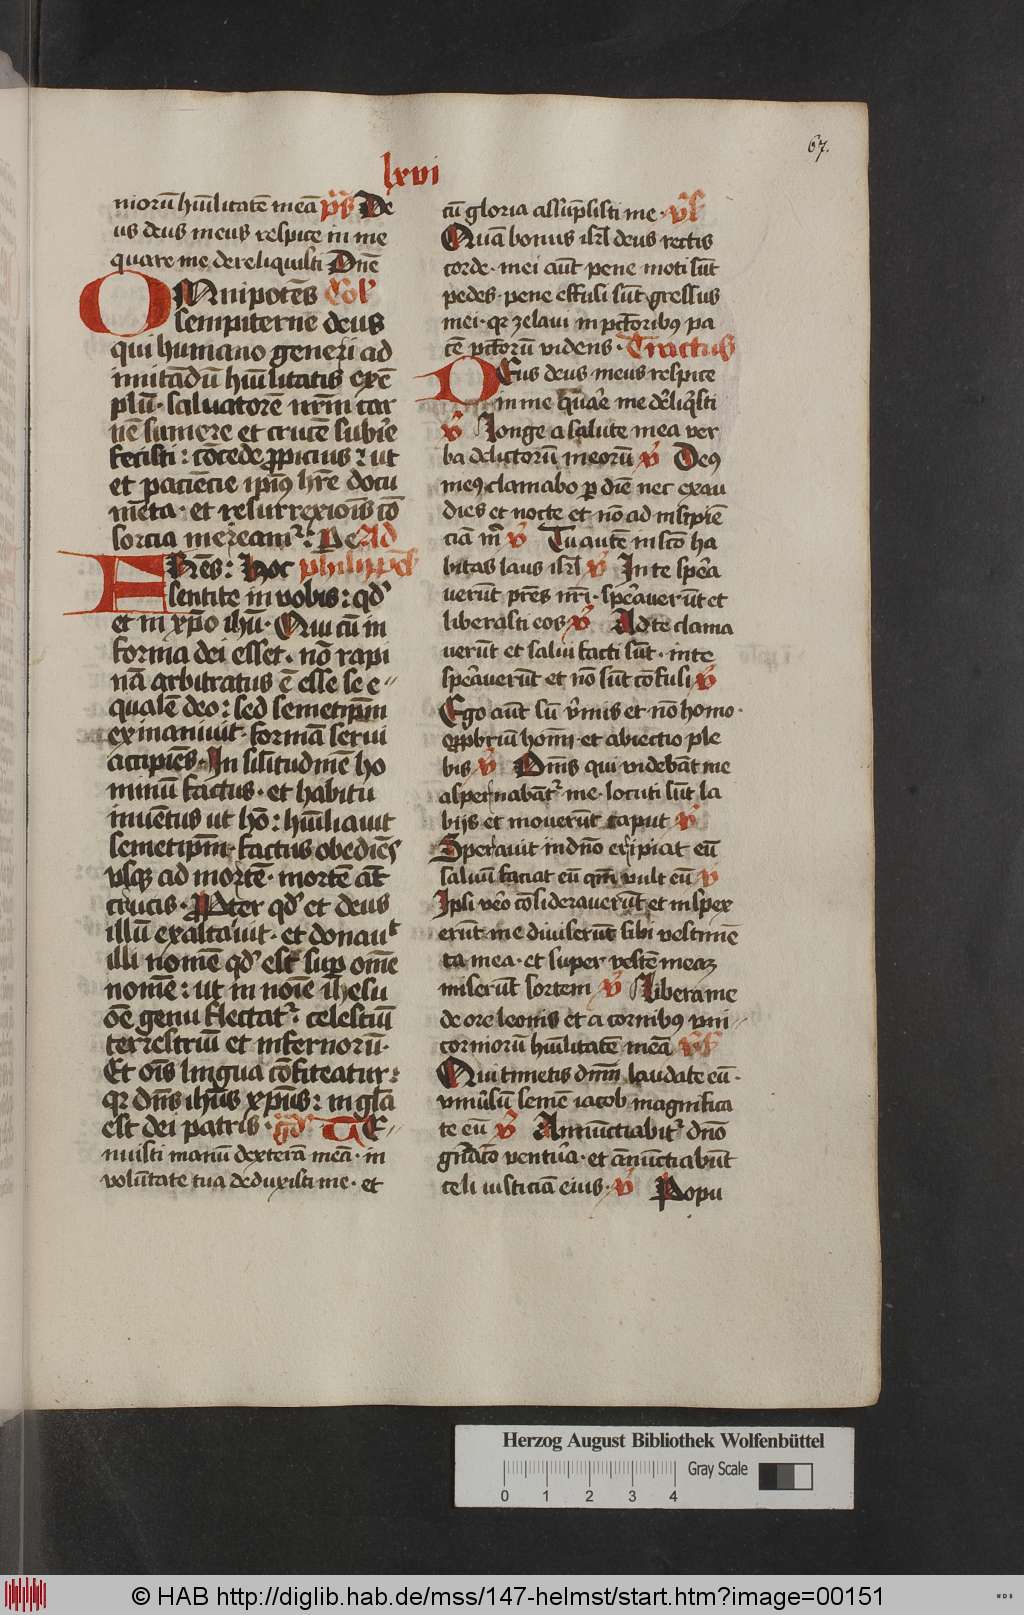 67.
lxvi
niorū hūilitatē meā p̄s De
us deus meus respice in me
quare me dereliquisti Dnē
OMnipotēs Col̄
sempiterne deus
qui humano generi ad
imitādū hūilitatis exē
plū· saluatorē nr̄m car
nē sumere et crucē subir̄e
fecisti: cōcede ꝓpicius: ut
et paciēcie ipīus hr̄e docu
mēta· et resurrexiōis cō
sorcia mereamr̄: Pe Ad
FRēs: Hoc philippeñ
sentite in vobis: qd̓
et in xp̄o ihū· Qui cū in
forma dei esset· nō rapi
nā arbitratus ē esse se e-
qualē deo: sed semetip̄m
exinaniuit· formā serui
accipiēs· In silītudinē ho
minū factus· et habitu
inuētus ut hō: hūiliauit
semetip̄m· factus obediēs
vsqꝫ ad mortē· mortē aūt
crucis· Propter qd̓ et deus
illū exaltauit· et donauit
illi nomē qd̓ est sup̄ omē
nomē: ut in noīe ihesu
oē genu flectatr̄· celestiū
terrestriū et infernorū·
Et oīs lingua cōfiteatur:
qr̄ dn̄s ihūs xp̄us: in gl̄a
est dei patris· gd̓ TE-
nuisti manū dexterā meā· in
volūtate tua deduxisti me· et
cū gloria assūpsisti me· v̄s
Quā bonus isrl̄ deus rectis
corde· mei aūt pene moti sūt
pedes· pene effusi sūt gressus
mei· qr̄ zelaui in pctōribꝫ pa
cē pctōrū videns· Tractus
DEus deus meus respice
in me quar̄e me der̄liqisti
v̄ Longe a salute mea ver
ba delictorū meorū v̄ Deꝯ
meꝯ clamabo ꝑ diē nec exau
dies et nocte et nō ad insipiē
ciā m̄ v̄ Tu autē in scō ha
bitas laus isrl̄ v̄ In te sper̄a
uerūt pr̄es nr̄i· sper̄auerūt et
liberasti eos v̄ Ad te clama
uerūt et salui facti sūt· in te
sper̄auerūt et nō sūt cōfusi v̄
Ego aūt sū v̄mis et nō homo·
opꝓbriū homī· et abiectio ple
bis v̄ Om̄s qui videbāt me
aspernabātr̄ me· locuti sūt la
bijs et mouerūt caput v̄
Sperauit in dn̄o eripiat eū
saluū faciat eū qm̄ vult eū v̄
Ipsi ver̄o cōsiderauerūt et inspex
erūt me diuiserūt sibi vestimē
ta mea· et super vestē meaꝫ
miserūt sortem v̄ Libera me
de ore leonis et a cornibꝯ vni-
corniorū hūilitatē meā v̄s
Qui timetis dn̄m laudate eū·
vniūsū semē iacob magnifica
te eū v̄ Annūctiabitr̄ dn̄o
gn̄acō ventur̄a· et ānūctiabūt
celi iusticiā eius· v̄ Popu
Herzog August Bibliothek Wolfenbüttel
Gray Scale
0 1 2 3 4
© HAB http://diglib.hab.de/mss/147-helmst/start.htm?image=00151